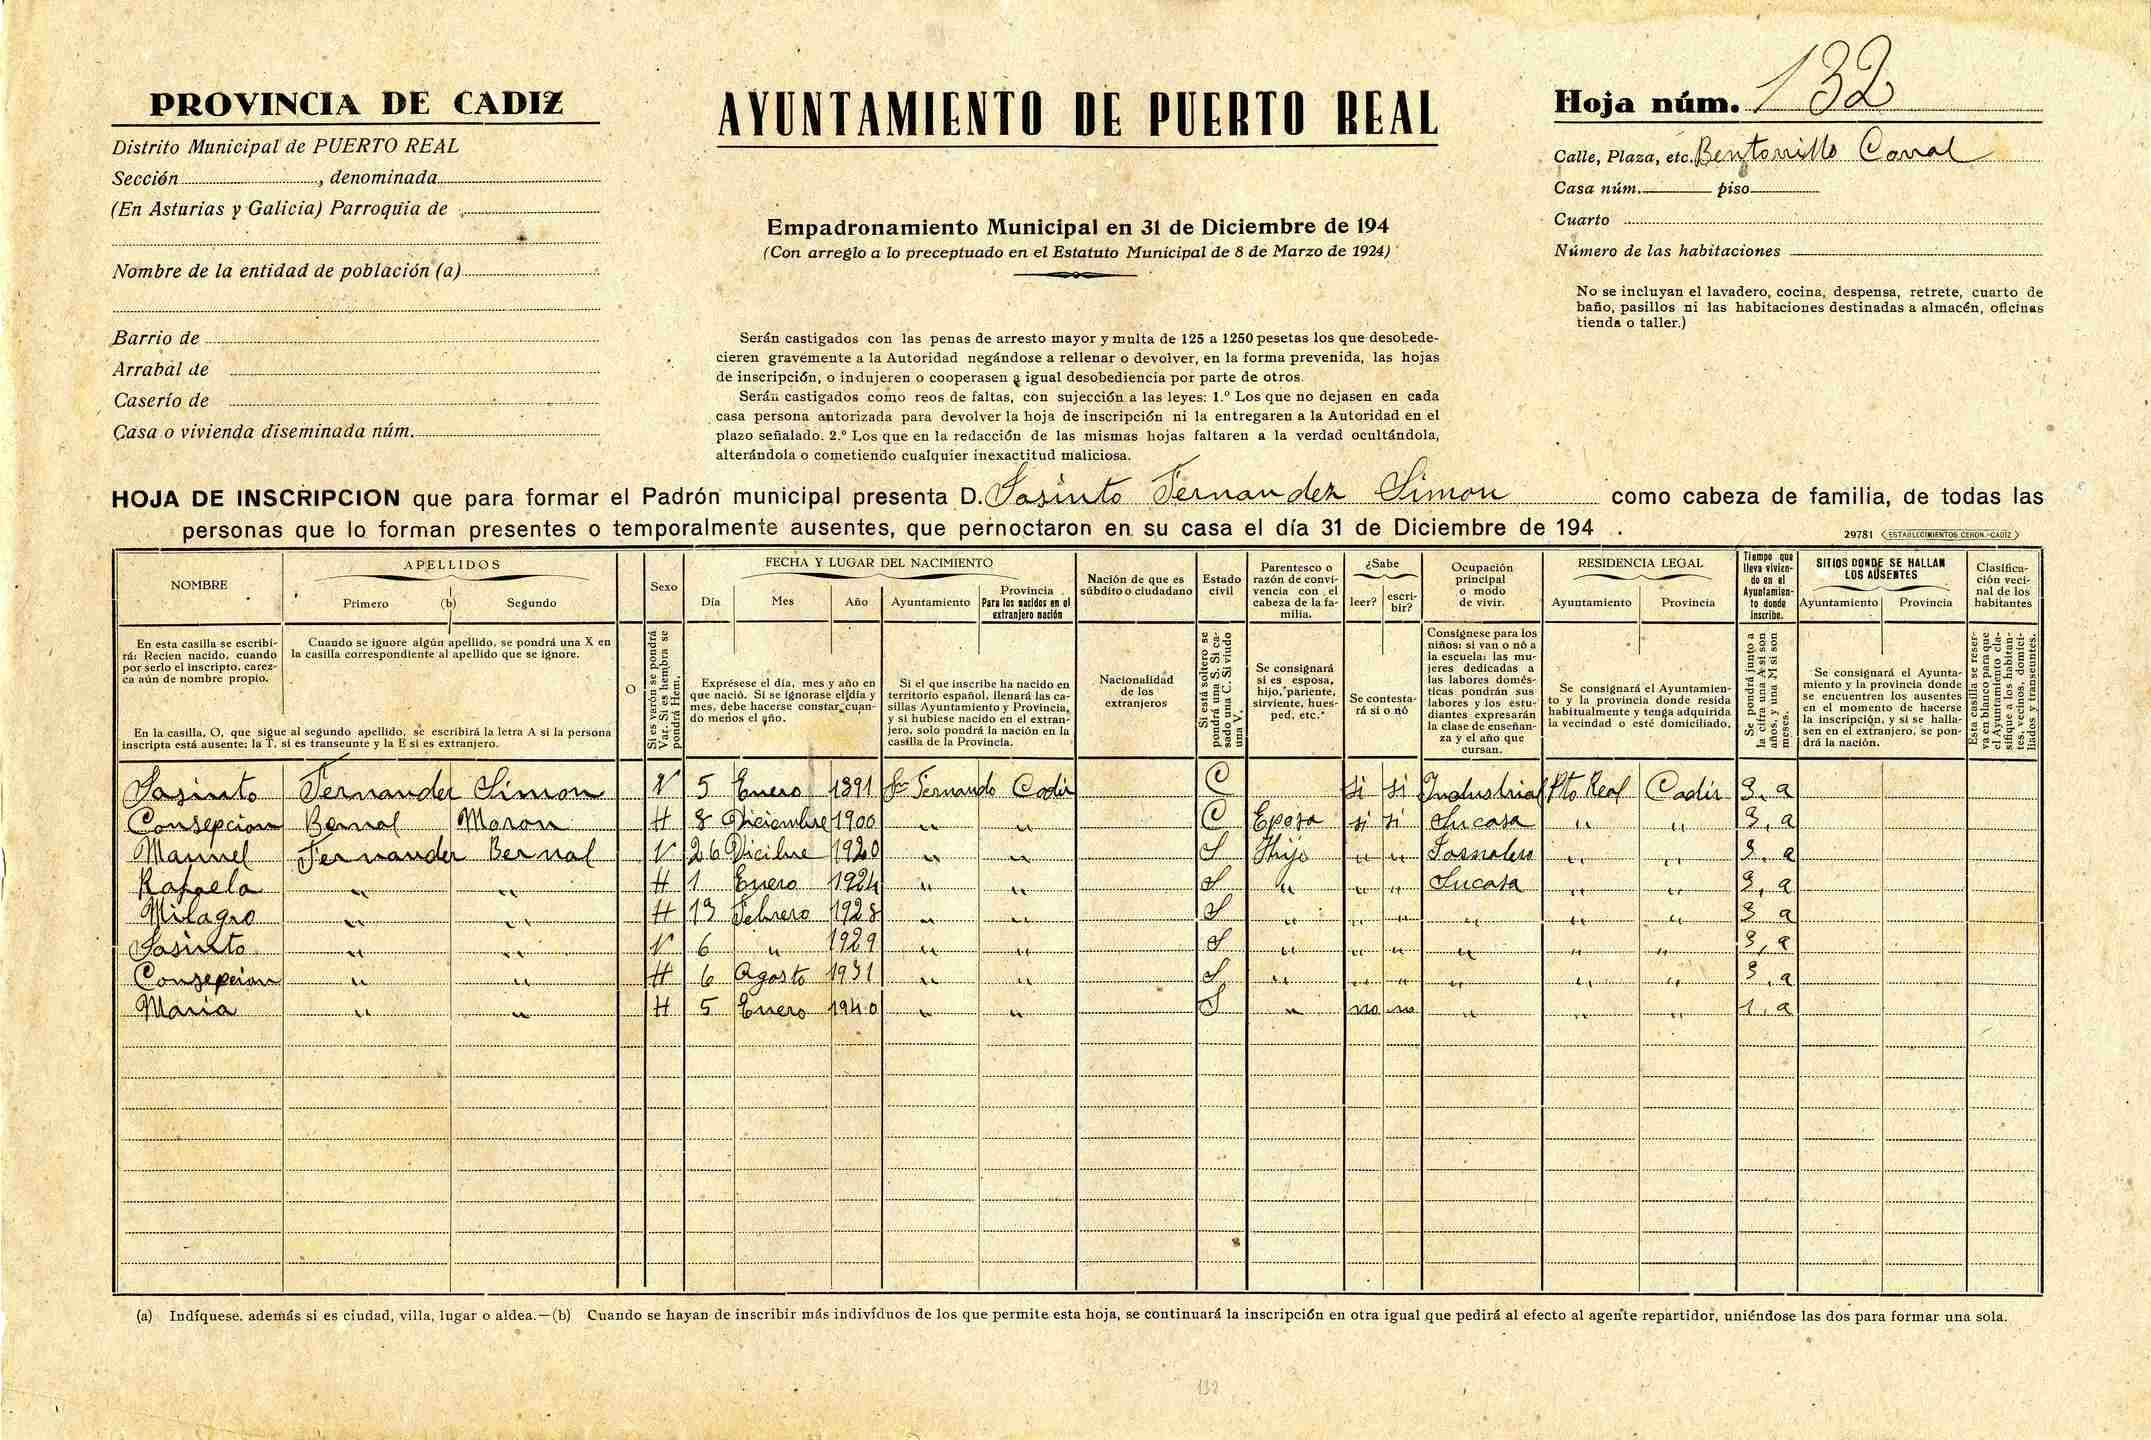 PROVINCIA DE CADIZ
Distrito Municipal de PUERTO REAL
Sección , denominada
(En Asturias y Galicia) Parroquia de
Nombre de la entidad de población (a)
Barrio de
Arrabal de
Caserío de
Casa o vivienda diseminada núm.
AYUNTAMIENTO DE PUERTO REAL
Empadronamiento Municipal en 31 de Diciembre de 194
(Con arreglo a lo preceptuado en el Estatuto Municipal de 8 de Marzo de 1924)
Serán castigados con las penas de arresto mayor y multa de 125 a 1250 pesetas los que desobede-
cieren gravemente a la Autoridad negándose a rellenar o devolver, en la forma prevenida, las hojas
de inscripción, o indujeren o cooperasen a igual desobediencia por parte de otros.
Serán castigados como reos de faltas, con sujección a las leyes: 1.º Los que no dejasen en cada
casa persona autorizada para devolver la hoja de inscripción ni la entregaren a la Autoridad en el
plazo señalado. 2.º Los que en la redacción de las mismas hojas faltaren a la verdad ocultándola,
alterándola o cometiendo cualquier inexactitud maliciosa.
Hoja núm. 132
Calle, Plaza, etc. Corral
Casa núm. piso
Cuarto
Número de las habitaciones
No se incluyan el lavadero, cocina, despensa, retrete, cuarto de
baño, pasillos ni las habitaciones destinadas a almacén, oficinas
tienda o taller.)
HOJA DE INSCRIPCION que para formar el Padrón municipal presenta D. Jasinto Fernandez Simon como cabeza de familia, de todas las
personas que lo forman presentes o temporalmente ausentes, que pernoctaron en su casa el día 31 de Diciembre de 194 .
29781 ESTABLECIMIENTOS CERON.-CADIZ
NOMBRE
APELLIDOS
Primero (b) Segundo
O
Sexo
FECHA Y LUGAR DEL NACIMIENTO
Día Mes Año Ayuntamiento
Provincia
Para los nacidos en el
extranjero nación
Nación de que es
súbdito o ciudadano
Estado
civil
Parentesco o
razón de convi-
vencia con el
cabeza de la fa-
milia.
¿Sabe
leer? escri-
bir?
Ocupación
principal
o modo
de vivir.
RESIDENCIA LEGAL
Ayuntamiento Provincia
Tiempo que
lleva vivien-
do en el
Ayuntamien-
to donde
inscribe.
SITIOS DONDE SE HALLAN
LOS AUSENTES
Ayuntamiento Provincia
Clasifica-
ción veci-
nal de los
habitantes
En esta casilla se escribi-
rá: Recien nacido, cuando
por serlo el inscripto, carez-
ca aún de nombre propio.
Cuando se ignore algún apellido, se pondrá una X en
la casilla correspondiente al apellido que se ignore.
En la casilla, O, que sigue al segundo apellido, se escribirá la letra A si la persona
inscripta está ausente; la T, si es transeunte y la E si es extranjero.
Si es varón se pondrá
Var. Si es hembra se
pondrá Hem.
Exprésese el día, mes y año en
que nació. Si se ignorase el día y
mes, debe hacerse constar cuan-
do menos el año.
Si el que inscribe ha nacido en
territorio español, llenará las ca-
sillas Ayuntamiento y Provincia,
y si hubiese nacido en el extran-
jero, solo pondrá la nación en la
casilla de la Provincia.
Nacionalidad
de los
extranjeros
Si está soltero se
pondrá una S. Si ca-
sado una C. Si viudo
una V.
Se consignará
si es esposa,
hijo, pariente,
sirviente, hues-
ped, etc.
Se contesta-
rá si o nó
Consígnese para los
niños: si van o nó a
la escuela; las mu-
jeres dedicadas a
las labores domés-
ticas pondrán sus
labores y los estu-
diantes expresarán
la clase de enseñan-
za y el año que
cursan.
Se consignará el Ayuntamien-
to y la provincia donde resida
habitualmente y tenga adquirida
la vecindad o esté domiciliado.
Se pondrá junto a
la cifra una A si son
años, y una M si son
meses.
Se consignará el Ayunta-
miento y la provincia donde
se encuentren los ausentes
en el momento de hacerse
la inscripción, y si se halla-
sen en el extranjero, se pon-
drá la nación.
Esta casilla se reser-
va en blanco para que
el Ayuntamiento cla-
sifique a los habitan-
tes, vecinos, domici-
liados y transeuntes.
Jasinto Fernandez Simon V 5 Enero 1891 Sn Fernando Cadiz C si si Industrial Pto Real Cadiz 3, a
Consepcion Bernal Moron H 8 Diciembre 1900 " " C Eposa si si Sucasa " " 3, a
Manuel Fernandez Bernal V 26 Dicibre 1920 " " S Hijo " " Jornalero " " 3, a
Rafaela " " H 1 Enero 1924 " " S " " " Sucasa " " 3, a
Milagro " " H 13 Febrero 1928 " " S " " " " " " 3 a
Jasinto " " V 6 " 1929 " " S " " " " " " 3, a
Consepcion " " H 6 Agosto 1931 " " S " " " " " " 3, a
Maria " " H 5 Enero 1940 " " S " no no " " " 1, a
(a) Indíquese, además si es ciudad, villa, lugar o aldea.—(b) Cuando se hayan de inscribir más indivíduos de los que permite esta hoja, se continuará la inscripción en otra igual que pedirá al efecto al agente repartidor, uniéndose las dos para formar una sola.
132